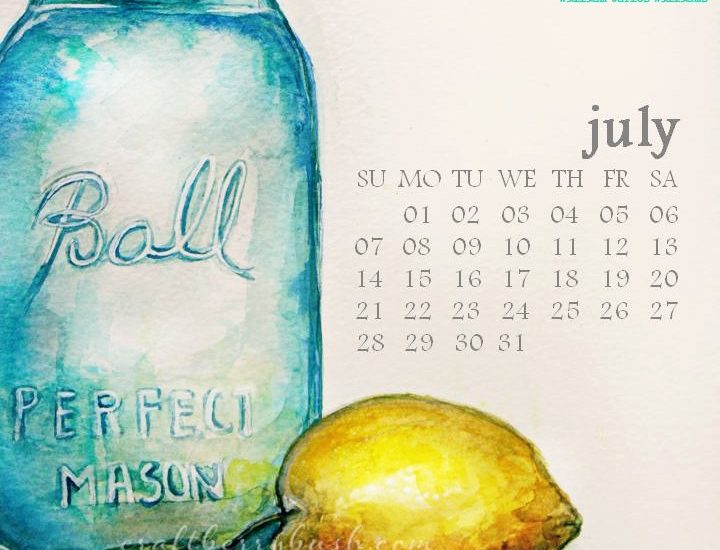 july
SU MO TU WE TH FR SA
01 02 03 04 05 06
07 08 09 10 11 12 13
14 15 16 17 18 19 20
21 22 23 24 25 26 27
28 29 30 31
Ball
PERFECT
MASON
craftberrybush.com